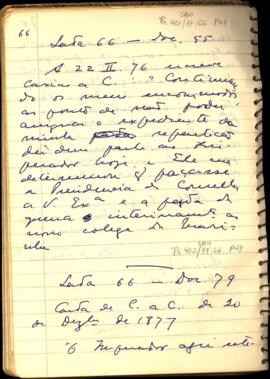 66
SAH
Pc 402/37.66 P43
Lata 66 — Doc. 55
A 22 II. 76 escreve
Caxias a C. : "Continuan
do os meus incommodos
ao ponto de não poder
o expediente da
minha repartição
dei d'isso parte ao Im-
perador hoje e Elle me
determinou q passasse
a Presidencia do Conselho
a V. Exa e a pasta da
guerra interinamente ao
nosso collega da Mari-
nha
SAH
Pc 402/37.66 P43
Lata 66 — Doc. 79
Carta de C. a C. de 20
de Dezbro de 1877
"O Imperador